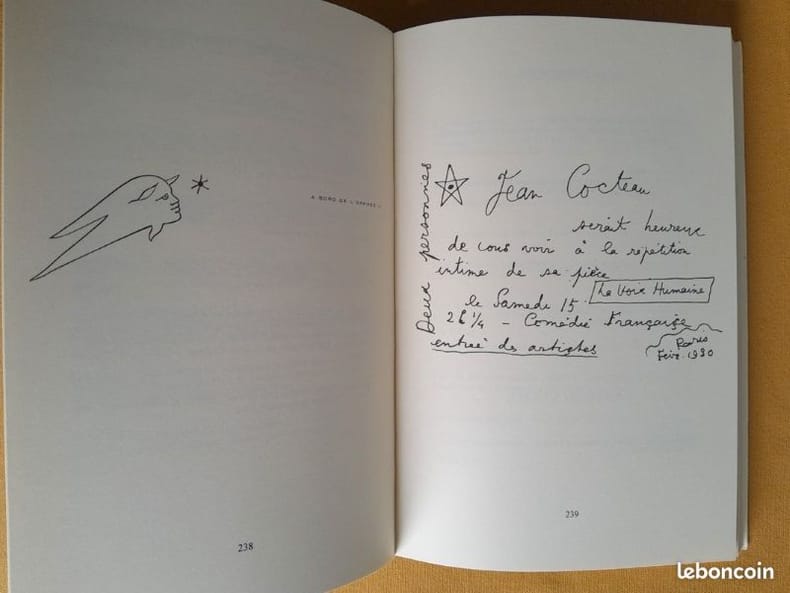 A BORD DE L'ORPHEE II
238
Deux personnes
Jean Cocteau
serait heureux
de vous voir à la répétition
intime de sa pièce
La Voix Humaine
le Samedi 15
2h 1/4 – Comédie Française
entrée des artistes
Paris
Fevr. 1930
239
leboncoin